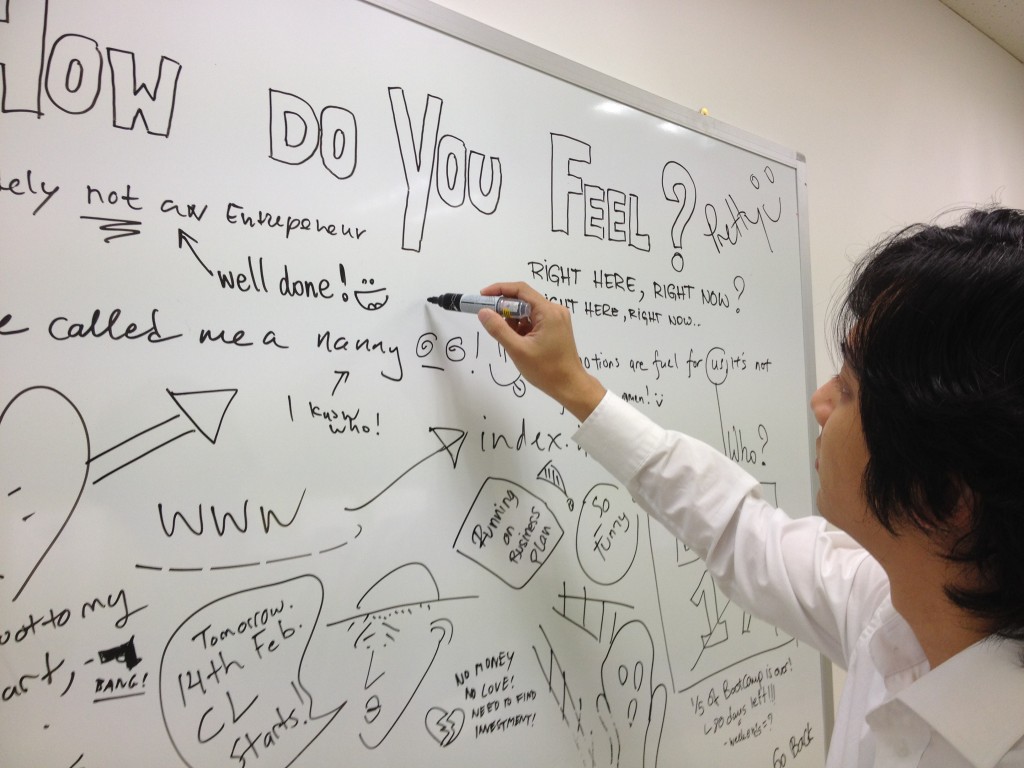 HOW DO YOU FEEL?
Pretty
not an Entrepeneur
well done!
RIGHT HERE, RIGHT NOW?
HERE, RIGHT NOW..
called me a nanny !
I know
who!
are fuel for us, it's not
Who?
index.
www
Running
on
Business
plan
So
funny
to my
BANG!
Tomorrow.
14th Feb.
CL
starts!!
NO MONEY
NO LOVE!
NEED TO FIND
INVESTMENT!
1/5 Of BootCamp is over!
20 days left!!!
Go Back